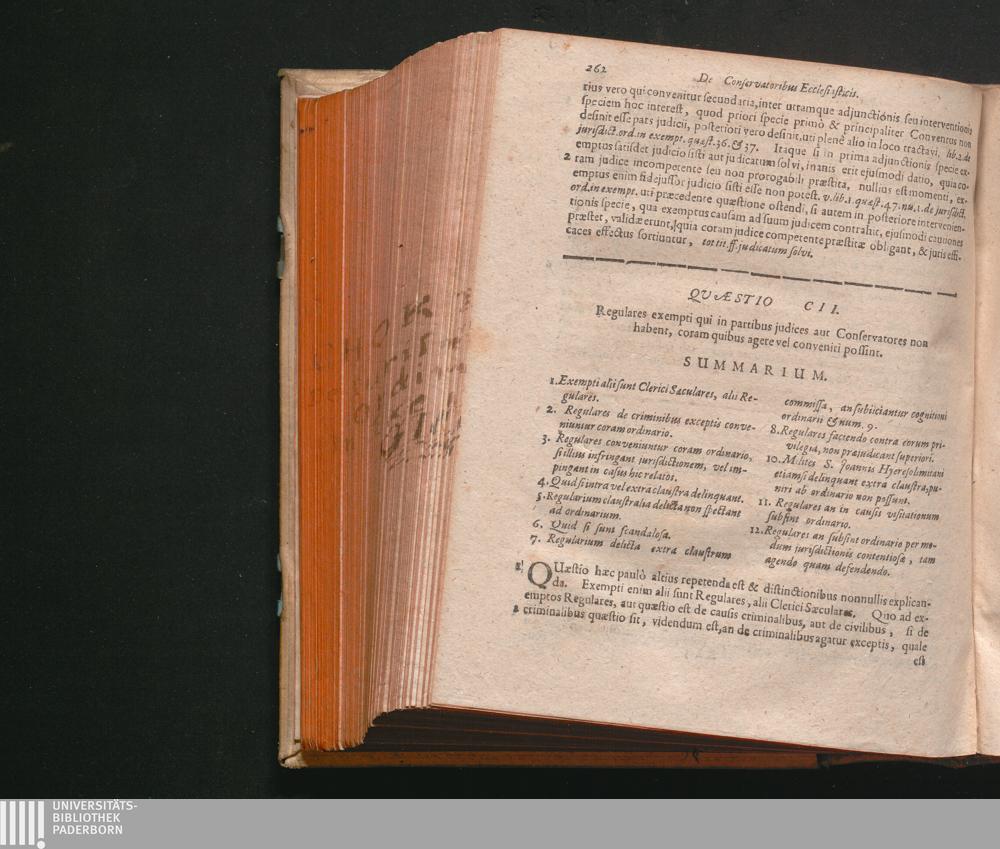 262
De Conservatoribus Ecclesiasticis.
tius vero qui convenitur secundaria, inter utramque adjunctionis seu interventionis
speciem hoc interest, quod priori specie primò & principaliter Conventus non
desinit esse pars judicii, posteriori vero desinit, uti plenè alio in loco tractavi, lib. 2. de
jurisdict. ord. in exempt. quæst. 36. & 37. Itaque si in prima adjunctionis specie ex-
emptus satisdet judicio sisti aut judicatum solvi, inanis erit ejusmodi datio, quia co-
2 ram judice incompetente seu non prorogabili præstita, nullius est momenti, ex-
emptus enim fidejussor judicio sisti esse non potest. v. lib. 1. quæst. 47. nu. 1. de jurisdict.
ord. in exempt. uti præcedente quæstione ostendi, si autem in posteriore intervenien-
tionis specie, qua exemptus causam ad suum judicem contrahit, ejusmodi cautiones
præstet, validæ erunt, quia coram judice competente præstitæ obligant, & juris effi-
caces effectus sortiuntur, tot tit. ff. judicatum solvi.
QUÆSTIO CII.
Regulares exempti qui in partibus judices aut Conservatores non
habent, coram quibus agere vel conveniri possint.
SUMMARIUM.
1. Exempti alii sunt Clerici Sæculares, alii Re-
gulares.
2. Regulares de criminibus exceptis conve-
niuntur coram ordinario.
3. Regulares conveniuntur coram ordinario,
si illius infringant jurisdictionem, vel im-
pingant in casus hic relatos.
4. Quid si intra vel extra claustra delinquant.
5. Regularium claustralia delicta non spectant
ad ordinarium.
6. Quid si sunt scandalosa.
7. Regularium delicta extra claustrum
commissa, an subiiciantur cognitioni
ordinarii & num. 9.
8. Regulares faciendo contra eorum pri-
vilegia, non præjudicant superiori.
10. Milites S. Joannis Hyerosolimitani
etiamsi delinquant extra claustra, pu-
niri ab ordinario non possunt.
11. Regulares an in causis visitationum
subsint ordinario.
12. Regulares an subsint ordinario per mo-
dum jurisdictionis contentiosæ, tam
agendo quam defendendo.
1 QUæstio hæc paulò altius repetenda est & distinctionibus nonnullis explican-
da. Exempti enim alii sunt Regulares, alii Clerici Sæculares. Quo ad ex-
emptos Regulares, aut quæstio est de causis criminalibus, aut de civilibus, si de
2 criminalibus quæstio sit, videndum est, an de criminalibus agatur exceptis, quale
est
UNIVERSITÄTS-
BIBLIOTHEK
PADERBORN